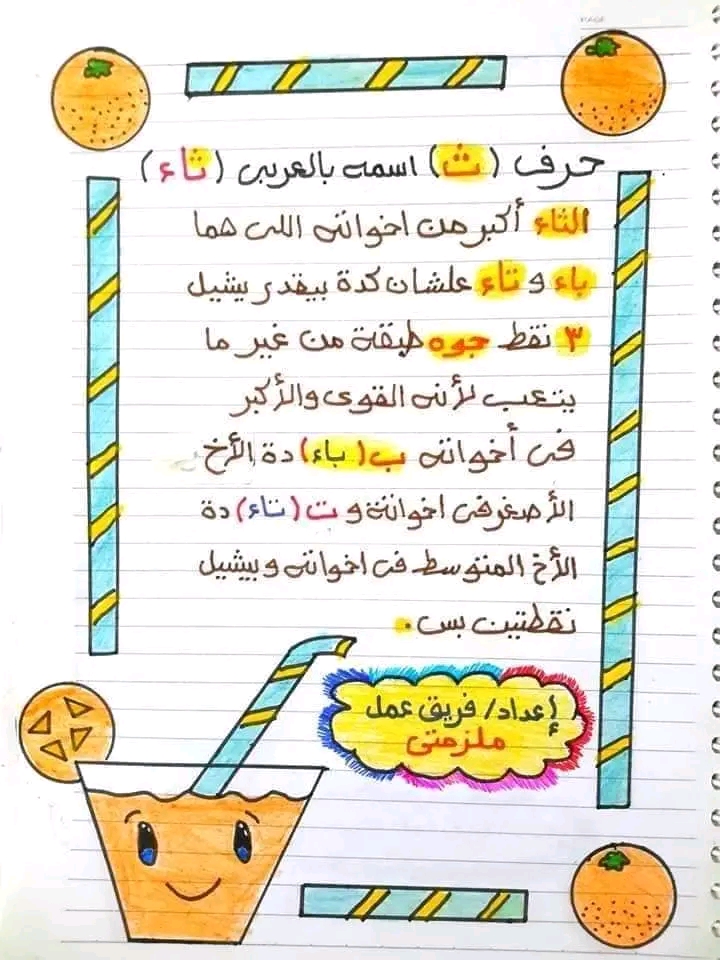 حرف (ث) اسمه بالعربى (ثاء)
الثاء أكبر من اخواته اللى هما
باء و تاء علشان كدة بيقدر يشيل
٣ نقط جوه طبقة من غير ما
يتعب لأنه القوى والأكبر
فى أخواته ب (باء) دة الأخ
الأصغر فى اخواتة و ت (تاء) دة
الأخ المتوسط فى اخواته وبيشيل
نقطتين بس.
إعداد/ فريق عمل
ملزمتى